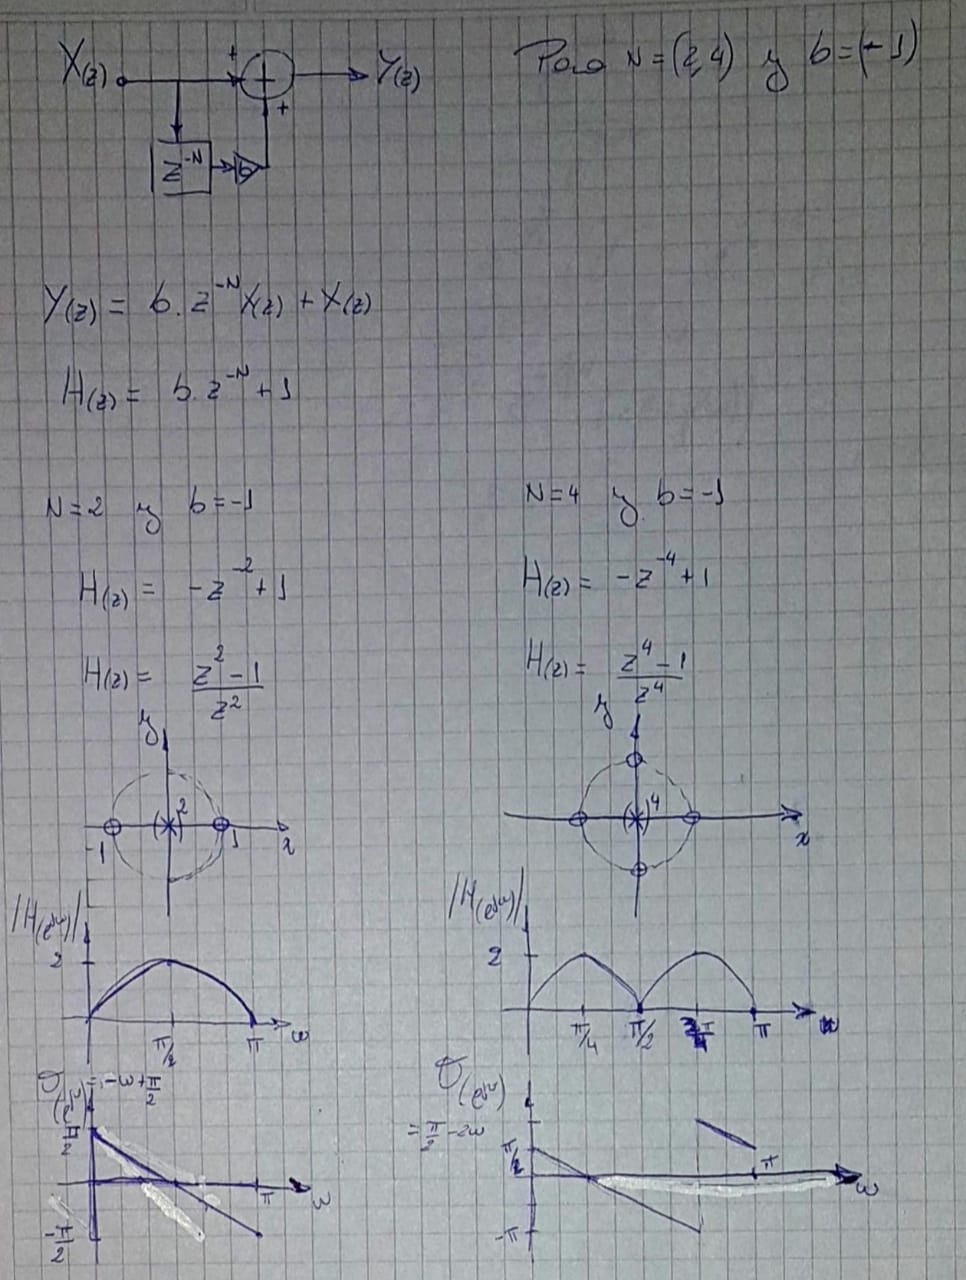 X(z) + Y(z) Para N=(2,4) y b=(-1)
+
z^-N b
Y(z) = b.z^-N X(z) + X(z)
H(z) = b.z^-N + 1
N=2 y b=-1
H(z) = -z^-2 + 1
H(z) = z^2 - 1 / z^2
y
( )^2
-1 1 x
|H(e^jω)|
2
π/2 π ω
(e^jω) = -ω + π/2
π/2
π ω
-π/2
N=4 y b=-1
H(z) = -z^-4 + 1
H(z) = z^4 - 1 / z^4
y
( )^4
x
|H(e^jω)|
2
π/4 π/2 π
(e^jω)
= π/2 - 2ω
π/2 π
ω
-π